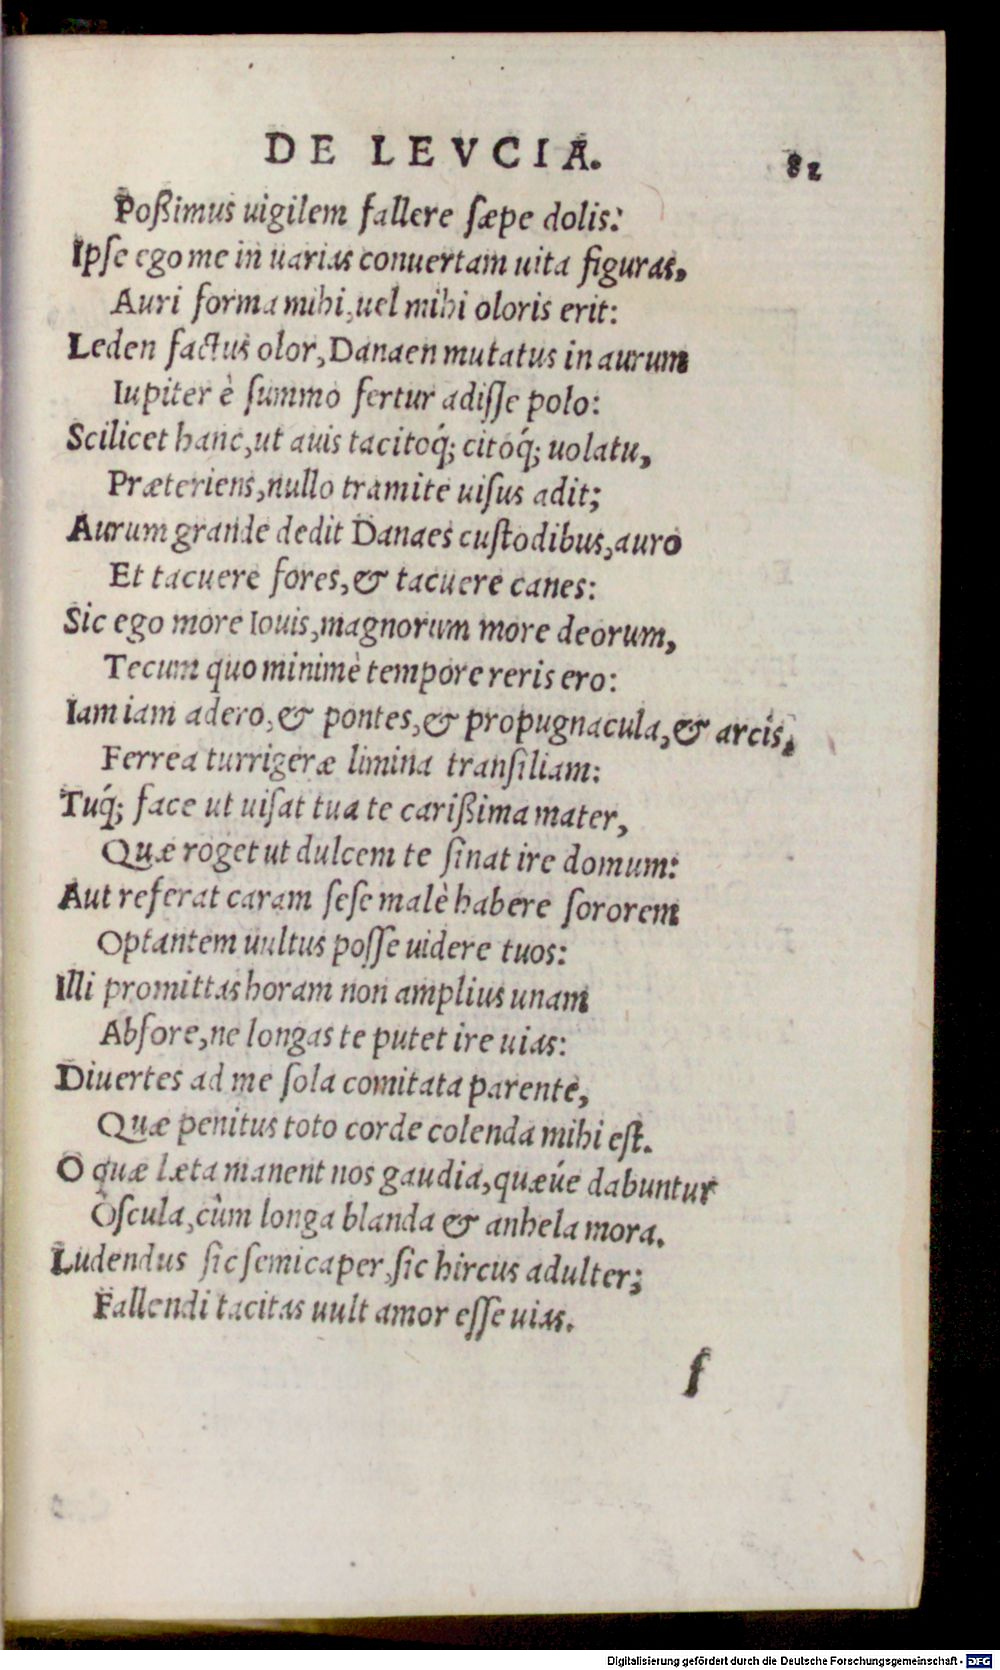 DE LEVCIA. 82
Poßimus uigilem fallere sæpe dolis:
Ipſe ego me in uarias conuertam uita figuras,
Auri forma mihi, uel mihi oloris erit:
Leden factus olor, Danaen mutatus in aurum
Iupiter è ſummo fertur adiſſe polo:
Scilicet hanc, ut auis tacitoq́; citoq́; uolatu,
Præteriens, nullo tramite uiſus adit;
Aurum grande dedit Danaes cuſtodibus, auro
Et tacuere fores, & tacuere canes:
Sic ego more Iouis, magnorum more deorum,
Tecum quo minimè tempore reris ero:
Iam iam adero, & pontes, & propugnacula, & arcis,
Ferrea turrigeræ limina tranſiliam:
Tuq́; face ut uiſat tua te carißima mater,
Quæ roget ut dulcem te ſinat ire domum:
Aut referat caram ſeſe malè habere ſororem
Optantem uultus poſſe uidere tuos:
Illi promittas horam non amplius unam
Abfore, ne longas te putet ire uias:
Diuertes ad me ſola comitata parente,
Quæ penitus toto corde colenda mihi eſt.
O quæ læta manent nos gaudia, quæúe dabuntur
Oſcula, cùm longa blanda & anhela mora.
Ludendus ſic ſemicaper, ſic hircus adulter;
Fallendi tacitas uult amor eſſe uias.
f
Digitalisierung gefördert durch die Deutsche Forschungsgemeinschaft - DFG